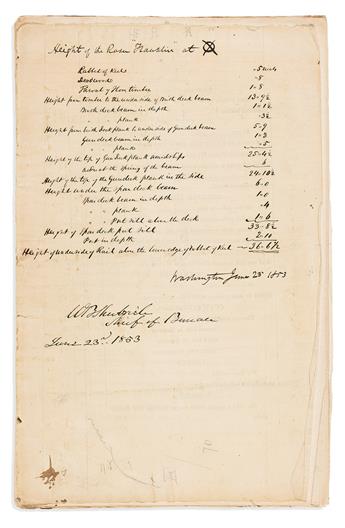 Height of the Razee "Franklin" at ⊗
Rabbet of Keel - 5 inch
Deadwood - 8
Throat of Floor timber 1 - 8
Height from timber to the underside of Birth deck beam 13 - 9½
Birth deck beam in depth 1 - 1½
" " plank - 3½
Height from birth deck plank to underside of Gun deck beam 5 - 9
Gun deck beam in depth 1 - 3
" " plank - 5
Height of the top of Gun deck plank amidships 25 - 4½
deduct the spring of the beam 6
Height of the top of the Gun deck plank in the side 24 - 10½
Height under the spar deck beam 6 - 0
Spar deck beam in depth 1 - 0
" " plank - 4
Port sill above the deck 1 - 6
Height of Spar deck port sill 33 - 8½
Port in depth 2 - 10
Height of underside of Rail above the lower edge of rabbet of Keel 36 - 6½
Washington June 23 1853
Chief of Bureau
June 23d. 1853